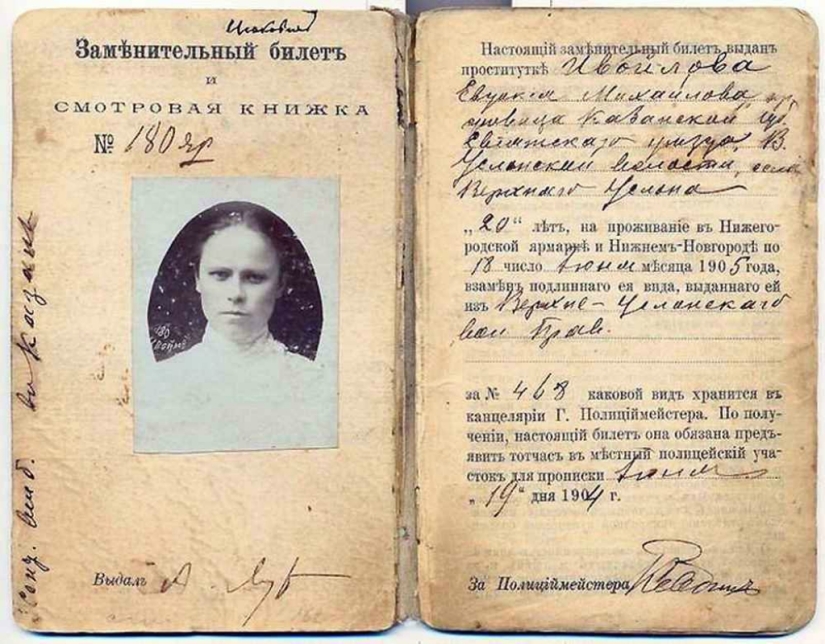 Замѣнительный билетъ
и
СМОТРОВАЯ КНИЖКА
№ 180 яр
Выдалъ
Настоящій замѣнительный билетъ выданъ
проституткѣ Ивойлова
Евдокия Михайлова
Казанской губ
Свіяжскаго уѣзда, В.
Услонской волости, села
Верхняго Услона
„20“ лѣтъ, на проживаніе въ Нижего-
родской ярмаркѣ и Нижнемъ-Новгородѣ по
18 число Іюня мѣсяца 1905 года,
взамѣнъ подлиннаго ея вида, выданнаго ей
изъ Верхне-Услонскаго
вол Прав.
за № 468 каковой видъ хранится въ
канцеляріи Г. Полиціймейстера. По полу-
ченіи, настоящій билетъ она обязана предъ-
явить тотчасъ въ мѣстный полицейскій уча-
стокъ для прописки Іюня
„19“ дня 1904 г.
За Полиціймейстера
въ Казань